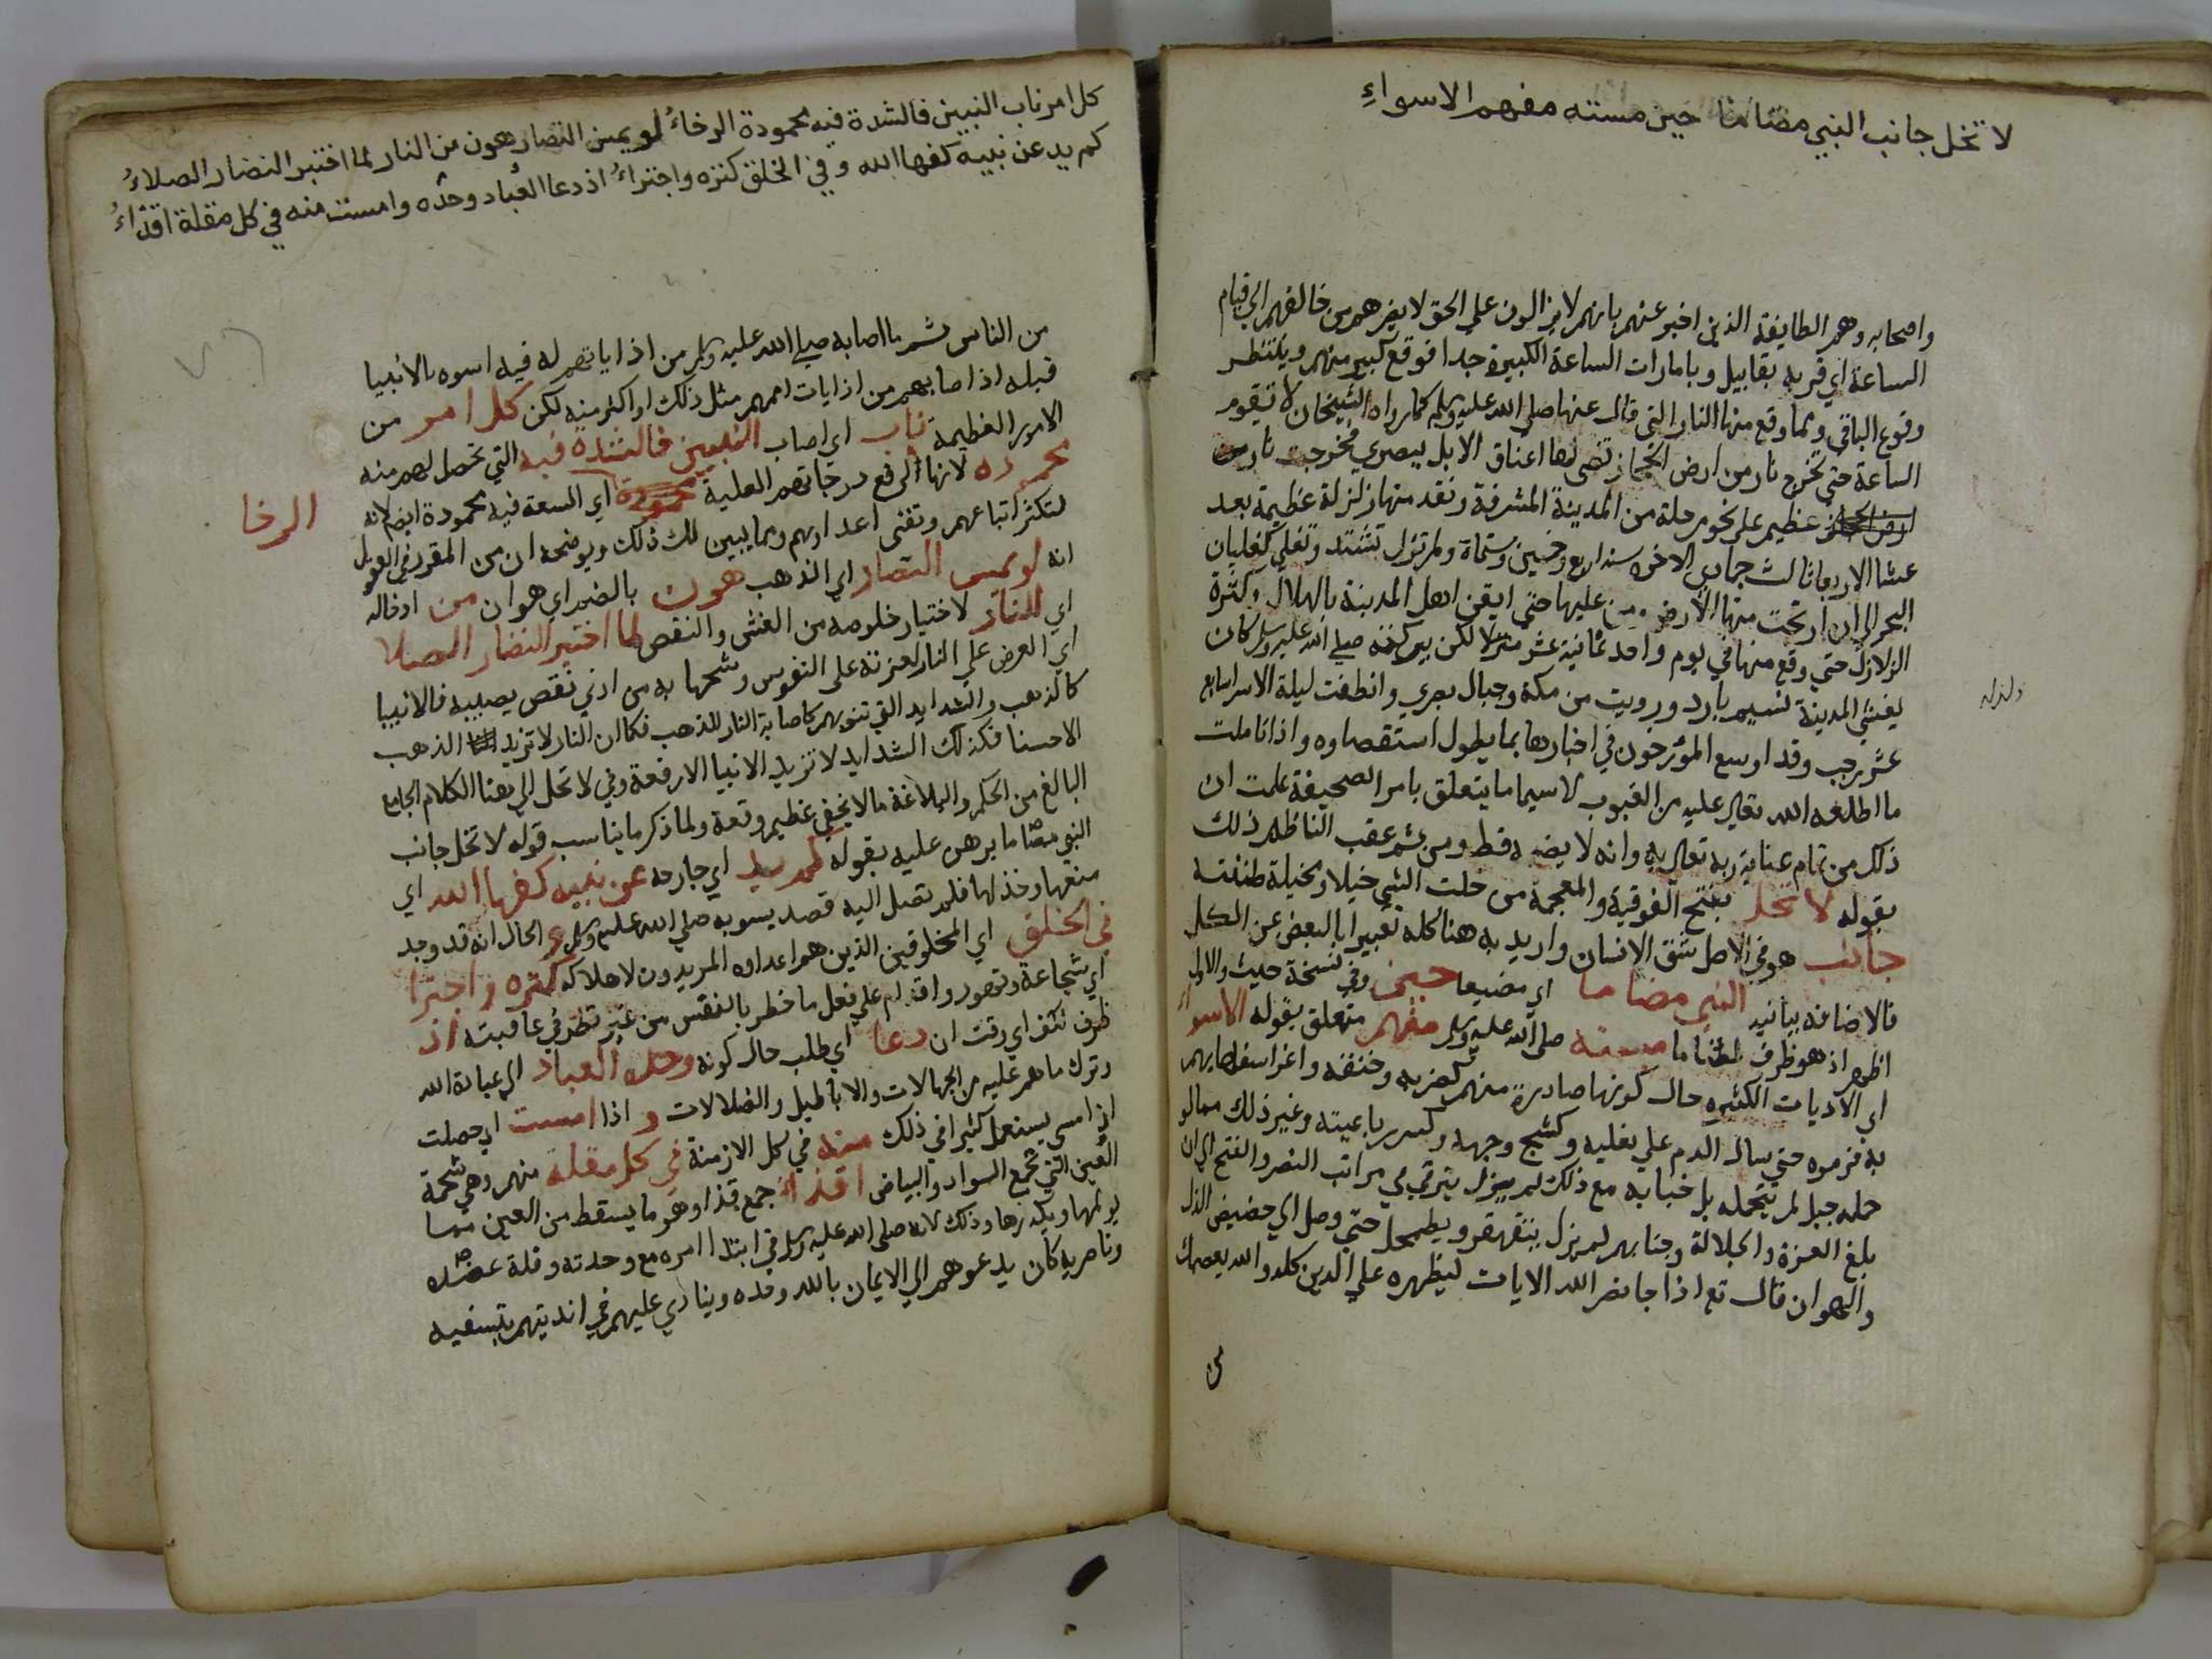 لا تخل جانب النبي مضاما حين مسته مفهم الاسواءِ
واصحابه وهم الطايفة الذين اخبر عنهم بانهم لا يزالون علي الحق لا يضرهم من خالفهم الي قيام
الساعة اي قربه بقابيل وبامارات الساعة الكبيرة جدا فوقع كبير منهم وينتظر
وقوع الباقي ومما وقع منها النار التي قال عنها صلي الله عليه وسلم كما رواه الشيخان لا تقوم
الساعة حتي تخرج نار من ارض الحجاز تضي لها اعناق الابل ببصري فخرجت نار
عظيم علي نحو مرحلة من المدينة المشرفة وتقدمتها زلزلة عظيمة بعد
عشا الاربعا ثالث جمادي الاخره سنة اربع وخمسين وستماة ولم تزل تشتد وتغلي كغليان
البحر الي ان ارتجت منها الارض ومن عليها حتي ايقن اهل المدينة بالهلاك وكثرة
الزلازل حتي وقع منها في يوم واحد ثمانية عشر لكن ببركته صلي الله عليه وسلم كان
يغشي المدينة نسيم بارد ورويت من مكة وجبال بصري وانطفت ليلة الاسرا سابع
عشر رجب وقد اوسع المؤرخون في اخبارها بما يطول استقصاوه واذا تاملت
ما اطلعه الله تعالي عليه من الغيوب لا سيما ما يتعلق بامر الصحيفة علمت ان
ذلك من تمام عناية ربه تعالي به وانه لا يضيعه قط ومن ثم عقب الناظم ذلك
بقوله لا تخل بفتح الفوقية والمعجمة من خلت الشي خيلا ومخيلة ظننته
جانب هو في الاصل شق الانسان واريد به هنا كله تعبيرا بالبعض عن الكل
فالاضافة بيانيه النبي مضاما اي مضيعا حين وفي نسخة حيث والاول
اظهر اذ هو ظرف مسته صلي الله عليه وسلم منهم متعلق بقوله الاسواء
اي الاذيات الكثيره حال كونها صادرة منهم كضربه وخنقه واغرا سفهايهم
به فرموه حتي سال الدم علي نعليه وكشج وجهه وكسر رباعيته وغير ذلك مما لو
حمله جبل لم يتحمله بل خبا به مع ذلك لم يزل يترقي في مراتب النصر والفتح الي ان
بلغ العزة والجلالة وجنابهم لم يزل يتقهقر ويضمحل حتي وصل الي حضيض الذل
والهوان قال تع اذا جا نصر الله الايات ليظهره علي الدين كله والله يعصمك
من
كل امر ناب النبيين فالشدة فيه محمودة والرخاءُ لو يمس النضار هون من النار لما اختير النضار الصلاءُ
كم يد عن نبيه كفها الله وفي الخلق كثره واجتراءُ اذ دعا العباد وحده وامست منه في كل مقلة اقذاءُ
من الناس ثم ما اصابه صلي الله عليه وسلم من اذاياتهم له فيه اسوه بالانبيا
قبله اذ اصابهم من اذايات اممهم مثل ذلك او اكثر منه لكن كل امر من
الامور العظيمة ناب اي اصاب النبيين فالشدة فيه التي تحصل لهم منه
محموده لانها الرفع درجاتهم العلية اي السعة فيه محمودة ايضا لانه
الرخا
لتكثر اتباعهم وتفني اعداوهم ومما يبين لك ذلك ويوضحه ان من المقرر في العقول
انه لو يمس النضار اي الذهب هون بالضم اي هوان من ادخاله
اي للنار لاختيار خلوصه من الغش والنقص لما اختير النضار الصلا
اي العرض علي النار لعزته علي النفوس وشحها به من ادني نقص يصيبه فالانبيا
كالذهب والشدايد التي تنوبهم كاصابة النار للذهب فكما ان النار لا تزيد الذهب
الا حسنا فكذلك الشدايد لا تزيد الانبيا الا رفعة وفي لا تخل الي هنا الكلام الجامع
البالغ من الحكم والبلاغة ما لا يخفي عظيم وقعه ولما ذكر ما يناسب قوله لا تخل جانب
النبي مضاما برهن عليه بقوله كم يد اي جارحه عن نبيه كفها الله اي
منعها وخذلها فلم تصل اليه قصد يسوبه صلي الله عليه وسلم و الحال انه قد وجد
في الخلق اي المخلوقين الذين هم اعداوه المريدون لاهلاكه كثره واجترا
اي شجاعة وتهور واقدام علي فعل ما خطر بالنفس من غير نظر في عاقبته اذ
ظرف لكف اي وقت ان دعا اي طلب حال كونه وحده العباد الي عبادة الله
وترك ما هم عليه من الجهالات والاباطيل والضلالات و اذا امست اي حصلت
اذ امسي يستعمل كثيرا في ذلك منه في كل الازمنة في كل مقلة منهم وهي شحمة
العين التي تجمع السواد والبياض اقذاء جمع قذا وهو ما يسقط من العين مما
يولمها ويكدرها وذلك لانه صلي الله عليه وسلم في ابتدا امره مع وحدته وقلة عضده
وناصريه كان يدعوهم الي الايمان بالله وحده وينادي عليهم في انديتهم بتسفيه